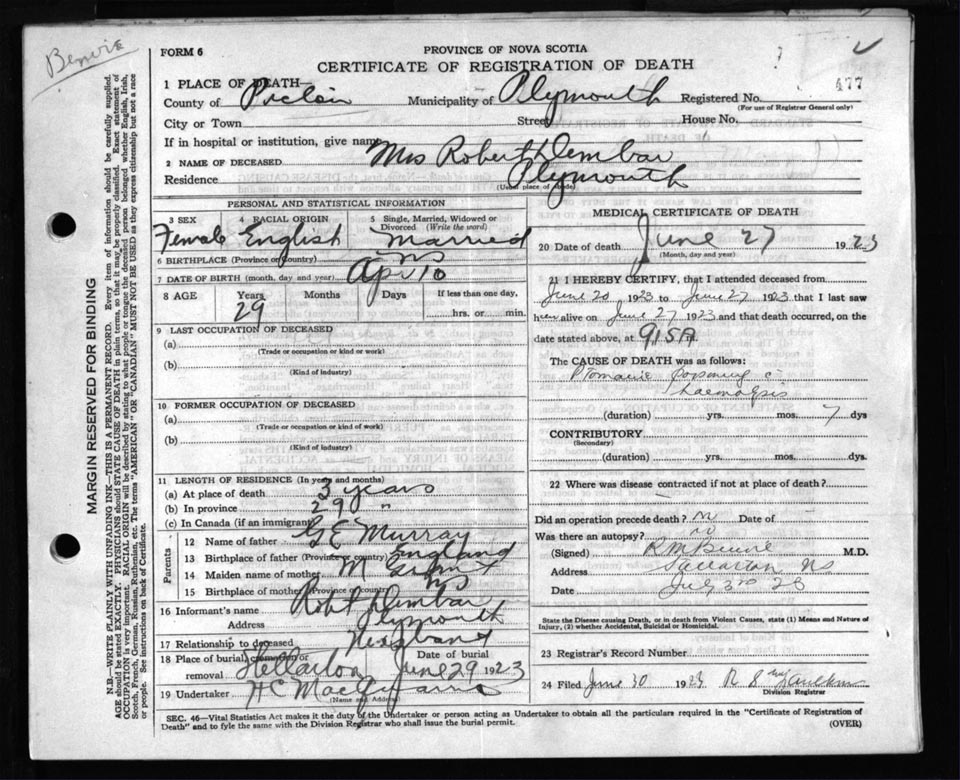 Benvie
FORM 6
PROVINCE OF NOVA SCOTIA
CERTIFICATE OF REGISTRATION OF DEATH
477
1 PLACE OF DEATH—
County of Pictou Municipality of Plymouth Registered No.
(For use of Registrar General only)
City or Town Street House No.
If in hospital or institution, give name
2 NAME OF DECEASED Mrs Robert Dembar
Residence Plymouth
(Usual place of abode)
PERSONAL AND STATISTICAL INFORMATION
3 SEX 4 RACIAL ORIGIN 5 Single, Married, Widowed or Divorced (Write the word)
Female English Married
6 BIRTHPLACE (Province or country) NS
7 DATE OF BIRTH (month, day and year) Apr 10
8 AGE Years Months Days If less than one day,
29 hrs. or min.
9 LAST OCCUPATION OF DECEASED
(a)
(Trade or occupation or kind or work)
(b)
(Kind of industry)
10 FORMER OCCUPATION OF DECEASED
(a)
(Trade or occupation or kind of work)
(b)
(Kind of industry)
11 LENGTH OF RESIDENCE (In years and months)
(a) At place of death 3 years
(b) In province 29 "
(c) In Canada (if an immigrant)
Parents
12 Name of father G E Murray
13 Birthplace of father (Province or country) England
14 Maiden name of mother M Grant
15 Birthplace of mother (Province or country) NS
16 Informant's name Robt Dembar
Address Plymouth
17 Relationship to deceased Husband
18 Place of burial, cremation or removal Date of burial
Stellarton June 29 1923
19 Undertaker H C
(Name and Address)
MEDICAL CERTIFICATE OF DEATH
20 Date of death June 27 1923
(Month, day and year)
21 I HEREBY CERTIFY, that I attended deceased from
June 20 1923 to June 27 1923 that I last saw
her alive on June 27 1923 and that death occurred, on the
date stated above, at 915A
The CAUSE OF DEATH was as follows:
Ptomaine Poisoning c
haemolysis
(duration) yrs. mos. 7 dys
CONTRIBUTORY
(Secondary)
(duration) yrs. mos. dys.
22 Where was disease contracted if not at place of death?
Did an operation precede death? no Date of
Was there an autopsy? no
(Signed) R M Benvie M.D.
Address Stellarton NS
Date July 3rd 23
State the Disease causing Death, or in death from Violent Causes, state (1) Means and Nature of Injury, (2) whether Accidental, Suicidal or Homicidal.
23 Registrar's Record Number
24 Filed June 30 1923 R S
Division Registrar
SEC. 46—Vital Statistics Act makes it the duty of the Undertaker or person acting as Undertaker to obtain all the particulars required in the "Certificate of Registration of
Death" and to fyle the same with the Division Registrar who shall issue the burial permit.
(OVER)
MARGIN RESERVED FOR BINDING
N.B—WRITE PLAINLY WITH UNFADING INK—THIS IS A PERMANENT RECORD. Every item of information should be carefully supplied.
AGE should be stated EXACTLY. PHYSICIANS should STATE CAUSE OF DEATH in plain terms, so that it may be properly classified. Exact statement of
OCCUPATION is very important. RACIAL ORIGIN will be described by stating to what people or tongue the deceased person belonged whether English, Irish,
Scotch, French, German, Russian, Ruthenian, etc. The terms "AMERICAN" OR "CANADIAN" MUST NOT BE USED as they express citizenship but not a race
or people. See instructions on back of Certificate.